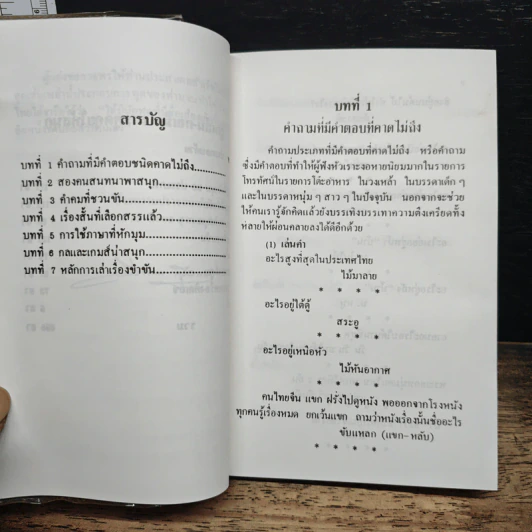 สารบัญ
บทที่ 1 คำถามที่มีคำตอบชนิดคาดไม่ถึง
บทที่ 2 สองคนสนทนาพาสนุก
บทที่ 3 คำคมที่ชวนขัน
บทที่ 4 เรื่องสั้นที่เลือกสรรแล้ว
บทที่ 5 การใช้ภาษาที่หักมุม
บทที่ 6 กลและเกมส์น่าสนุก
บทที่ 7 หลักการเล่าเรื่องขำขัน
บทที่ 1
คำถามที่มีคำตอบที่คาดไม่ถึง
คำถามประเภทที่มีคำตอบที่คาดไม่ถึง หรือคำถาม
ซึ่งมีคำตอบที่ทำให้ผู้ฟังหัวเราะงอหายนิยมมากในรายการ
โทรทัศน์ในรายการโต๊ะอาหาร ในวงเหล้า ในบรรดาเด็ก ๆ
และในบรรดาหนุ่ม ๆ สาว ๆ ในปัจจุบัน นอกจากจะช่วย
ให้คนเรารู้จักคิดแล้วยังบรรเทิงบรรเทาความตึงเครียดทั้ง
หลายให้ผ่อนคลายลงได้ดีอีกด้วย
(1) เล่นคำ
อะไรสูงที่สุดในประเทศไทย
ไม้มาลาย
* * * *
อะไรอยู่ใต้ตู้
สระอู
* * * *
อะไรอยู่เหนือหัว
ไม้หันอากาศ
* * * *
คนไทยจีน แขก ฝรั่งไปดูหนัง พอออกจากโรงหนัง
ทุกคนรู้เรื่องหมด ยกเว้นแขก ถามว่าหนังเรื่องนั้นชื่ออะไร
ขับแหลก (แขก-หลับ)
* * * *